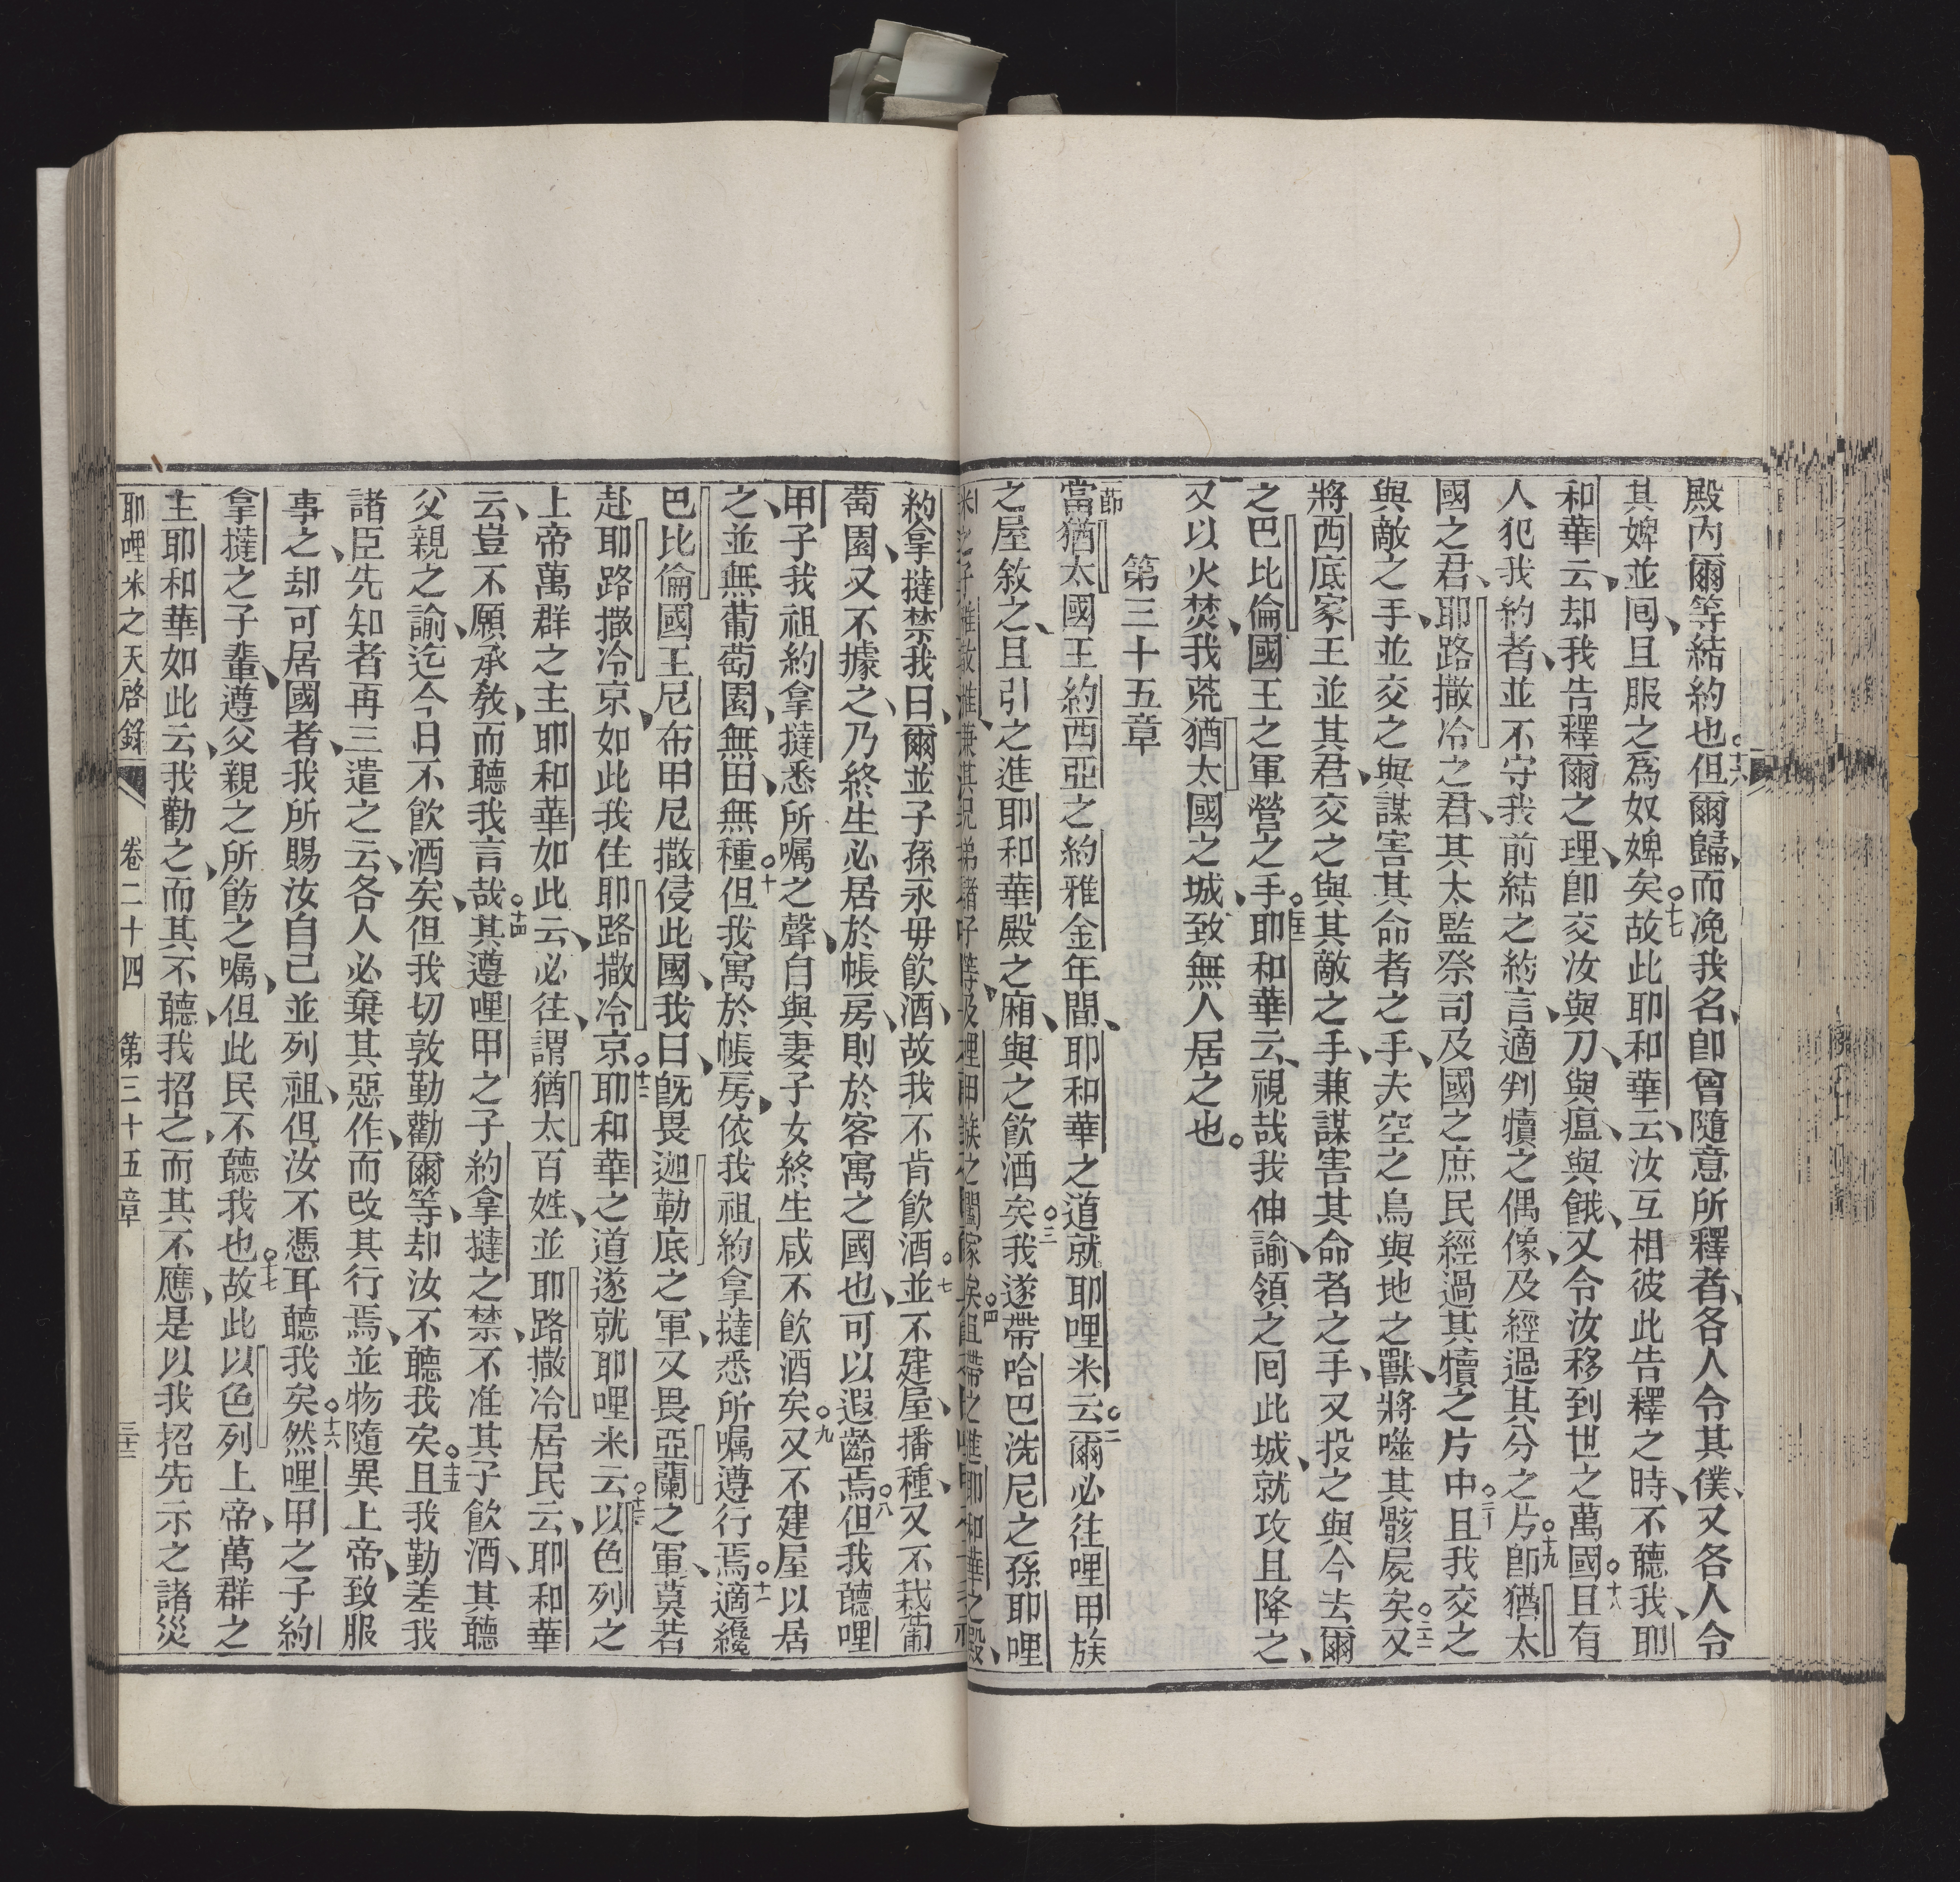 殿內爾等結約也十六但爾歸而凂我名卽曾隨意所釋者各人令其僕又各人令
其婢並囘且服之爲奴婢矣十七故此耶和華云汝互相彼此告釋之時不聽我耶
和華云却我告釋爾之理卽交汝與刀與瘟與餓又令汝移到世之萬國十八且有
人犯我約者並不守我前結之約言適判犢之偶像及經過其分之片十九卽猶太
國之君耶路撒冷之君其太監祭司及國之庶民經過其犢之片中二十且我交之
與敵之手並交之與謀害其命者之手夫空之鳥與地之獸將噬其骸屍矣二一又
將西底家王並其君交之與其敵之手兼謀害其命者之手又投之與今去爾
之巴比倫國王之軍營之手二二耶和華云視哉我伸諭領之囘此城就攻且降之
又以火焚我荒猶太國之城致無人居之也
第三十五章
節當猶太國王約西亞之約雅金年間耶和華之道就耶哩米云二爾必往哩甲族
之屋敘之且引之進耶和華殿之廂與之飮酒矣三我遂帶哈巴洗尼之孫耶哩
米之子雅 兼其兄弟諸子等及哩甲族之闔家矣四且帶之進耶和華之殿
約拿撻禁我曰爾並子孫永毋飮酒故我不肯飮酒七並不建屋播種又不栽葡
萄園又不據之乃終生必居於帳房則於客寓之國也可以遐齡焉八但我聽哩
甲子我祖約拿撻悉所囑之聲自與妻子女終生咸不飮酒矣九又不建屋以居
之並無葡萄園無田無種十但我寓於帳房依我祖約拿撻悉所囑遵行焉十一適纔
巴比倫國王尼布甲尼撒侵此國我曰旣畏迦勒底之軍又畏亞蘭之軍莫若
赴耶路撒冷京如此我住耶路撒冷京十二耶和華之道遂就耶哩米云十三以色列之
上帝萬群之主耶和華如此云必往謂猶太百姓並耶路撒冷居民云耶和華
云豈不願承敎而聽我言哉十四其遵哩甲之子約拿撻之禁不准其子飮酒其聽
父親之諭迄今日不飮酒矣但我切敦勤勸爾等却汝不聽我矣十五且我勤差我
諸臣先知者再三遣之云各人必棄其惡作而改其行焉並物隨異上帝致服
事之却可居國者我所賜汝自己並列祖但汝不憑耳聽我矣十六然哩甲之子約
拿撻之子輩遵父親之所飭之囑但此民不聽我也十七故此以色列上帝萬群之
主耶和華如此云我勸之而其不聽我招之而其不應是以我招先示之諸災
耶哩米之天啓錄 卷二十四 第三十五章 三十二